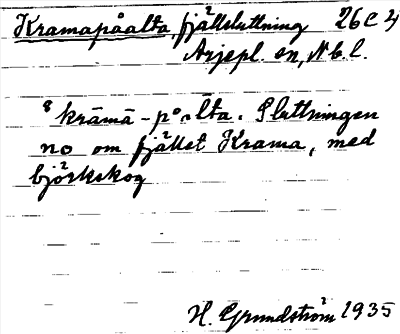 Kramapåalta, fjällsluttning 26C4
Arjepl. sn, Nb. l.
krāmā-po̊ₐlta. Sluttningen
no om fjället Krama, med
björkskog
H. Grundström 1935